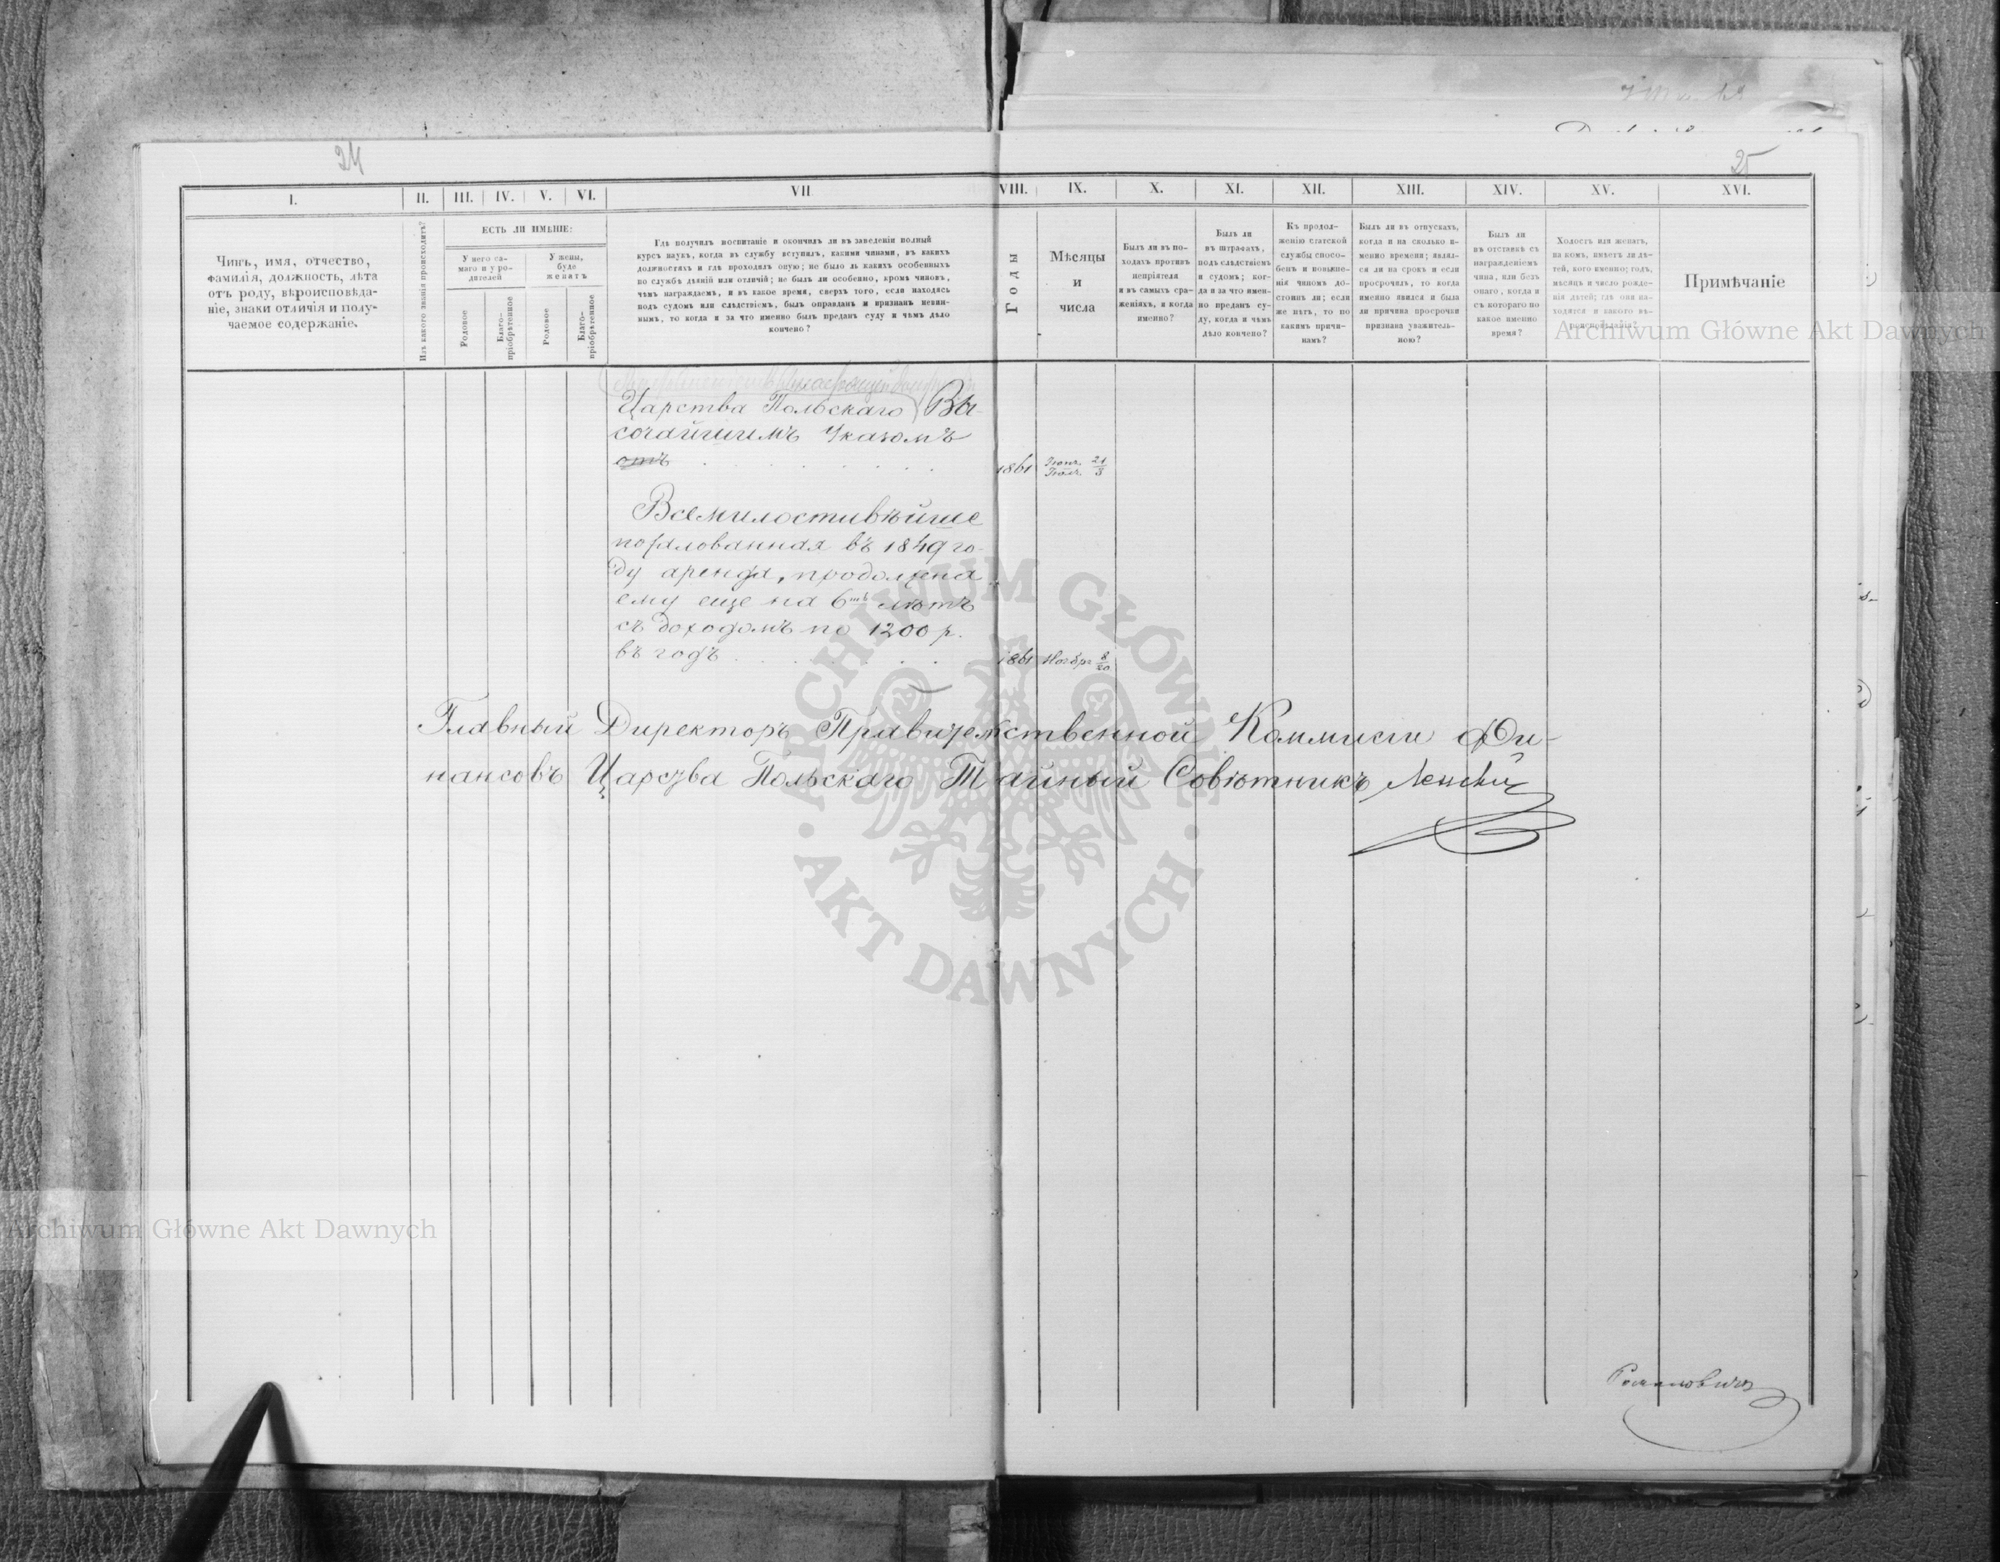 24
25
I.
II.
III.
IV.
V.
VI.
VII
VIII.
IX.
X.
XI.
XII.
XIII.
XIV.
XV.
XVI.
Чинъ, имя, отчество,
фамилія, должность, лѣта
отъ роду, вѣроисповѣда-
ніе, знаки отличія и полу-
чаемое содержаніе.
Изъ какого званія происходитъ?
ЕСТЬ ЛИ ИМѢНІЕ:
У него са-
маго и у ро-
дителей
У жены,
буде
женатъ
Родовое
Благо-
пріобрѣтенное
Родовое
Благо-
пріобрѣтенное
Гдѣ получилъ воспитаніе и окончилъ ли въ заведеніи полный
курсъ наукъ, когда въ службу вступилъ, какими чинами, въ какихъ
должностяхъ и гдѣ проходилъ оную; не было ль какихъ особенныхъ
по службѣ дѣяній или отличій; не былъ ли особенно, кромѣ чиновъ,
чѣмъ награждаемъ, и въ какое время, сверхъ того, если находясь
подъ судомъ или слѣдствіемъ, былъ оправданъ и признанъ невин-
нымъ, то когда и за что именно былъ преданъ суду и чѣмъ дѣло
кончено?
Годы
Мѣсяцы
и
числа
Былъ ли въ по-
ходахъ противъ
непріятеля
и въ самыхъ сра-
женіяхъ, и когда
именно?
Былъ ли
въ штрафахъ,
подъ слѣдствіемъ
и судомъ; ког-
да и за что имен-
но преданъ су-
ду, когда и чѣмъ
дѣло кончено?
Къ продол-
женію статской
службы спосо-
бенъ и повыше-
нія чиномъ до-
стоинъ ли; если
же нѣтъ, то по
какимъ причи-
намъ?
Былъ ли въ отпускахъ,
когда и на сколько и-
менно времени; являл-
ся ли на срокъ и если
просрочилъ, то когда
именно явился и была
ли причина просрочки
признана уважитель-
ною?
Былъ ли
въ отставкѣ съ
награжденіемъ
чина, или безъ
онаго, когда и
съ котораго по
какое именно
время?
Холостъ или женатъ,
на комъ, имѣетъ ли дѣ-
тей, кого именно; годъ,
мѣсяцъ и число рожде-
нія дѣтей; гдѣ они на-
ходятся и какого вѣ-
роисповѣданія?
Примѣчаніе
Царства Польскаго Вы-
сочайшимъ Указомъ
отъ
1861 Іюн. 21
Іюл. 3
Всемилостивѣйше
пожалованная въ 1849 го-
ду аренда, продолжена
ему еще на 6ть лѣтъ
съ доходомъ по 1200 р.
въ годъ
1861 Ноябр. 8/20
Главный Директоръ Правительственной Коммисіи Фи-
нансовъ Царства Польскаго Тайный Совѣтникъ Ленскій
Романовичъ
Archiwum Główne Akt Dawnych
Archiwum Główne Akt Dawnych
ARCHIWUM GŁÓWNE
AKT DAWNYCH